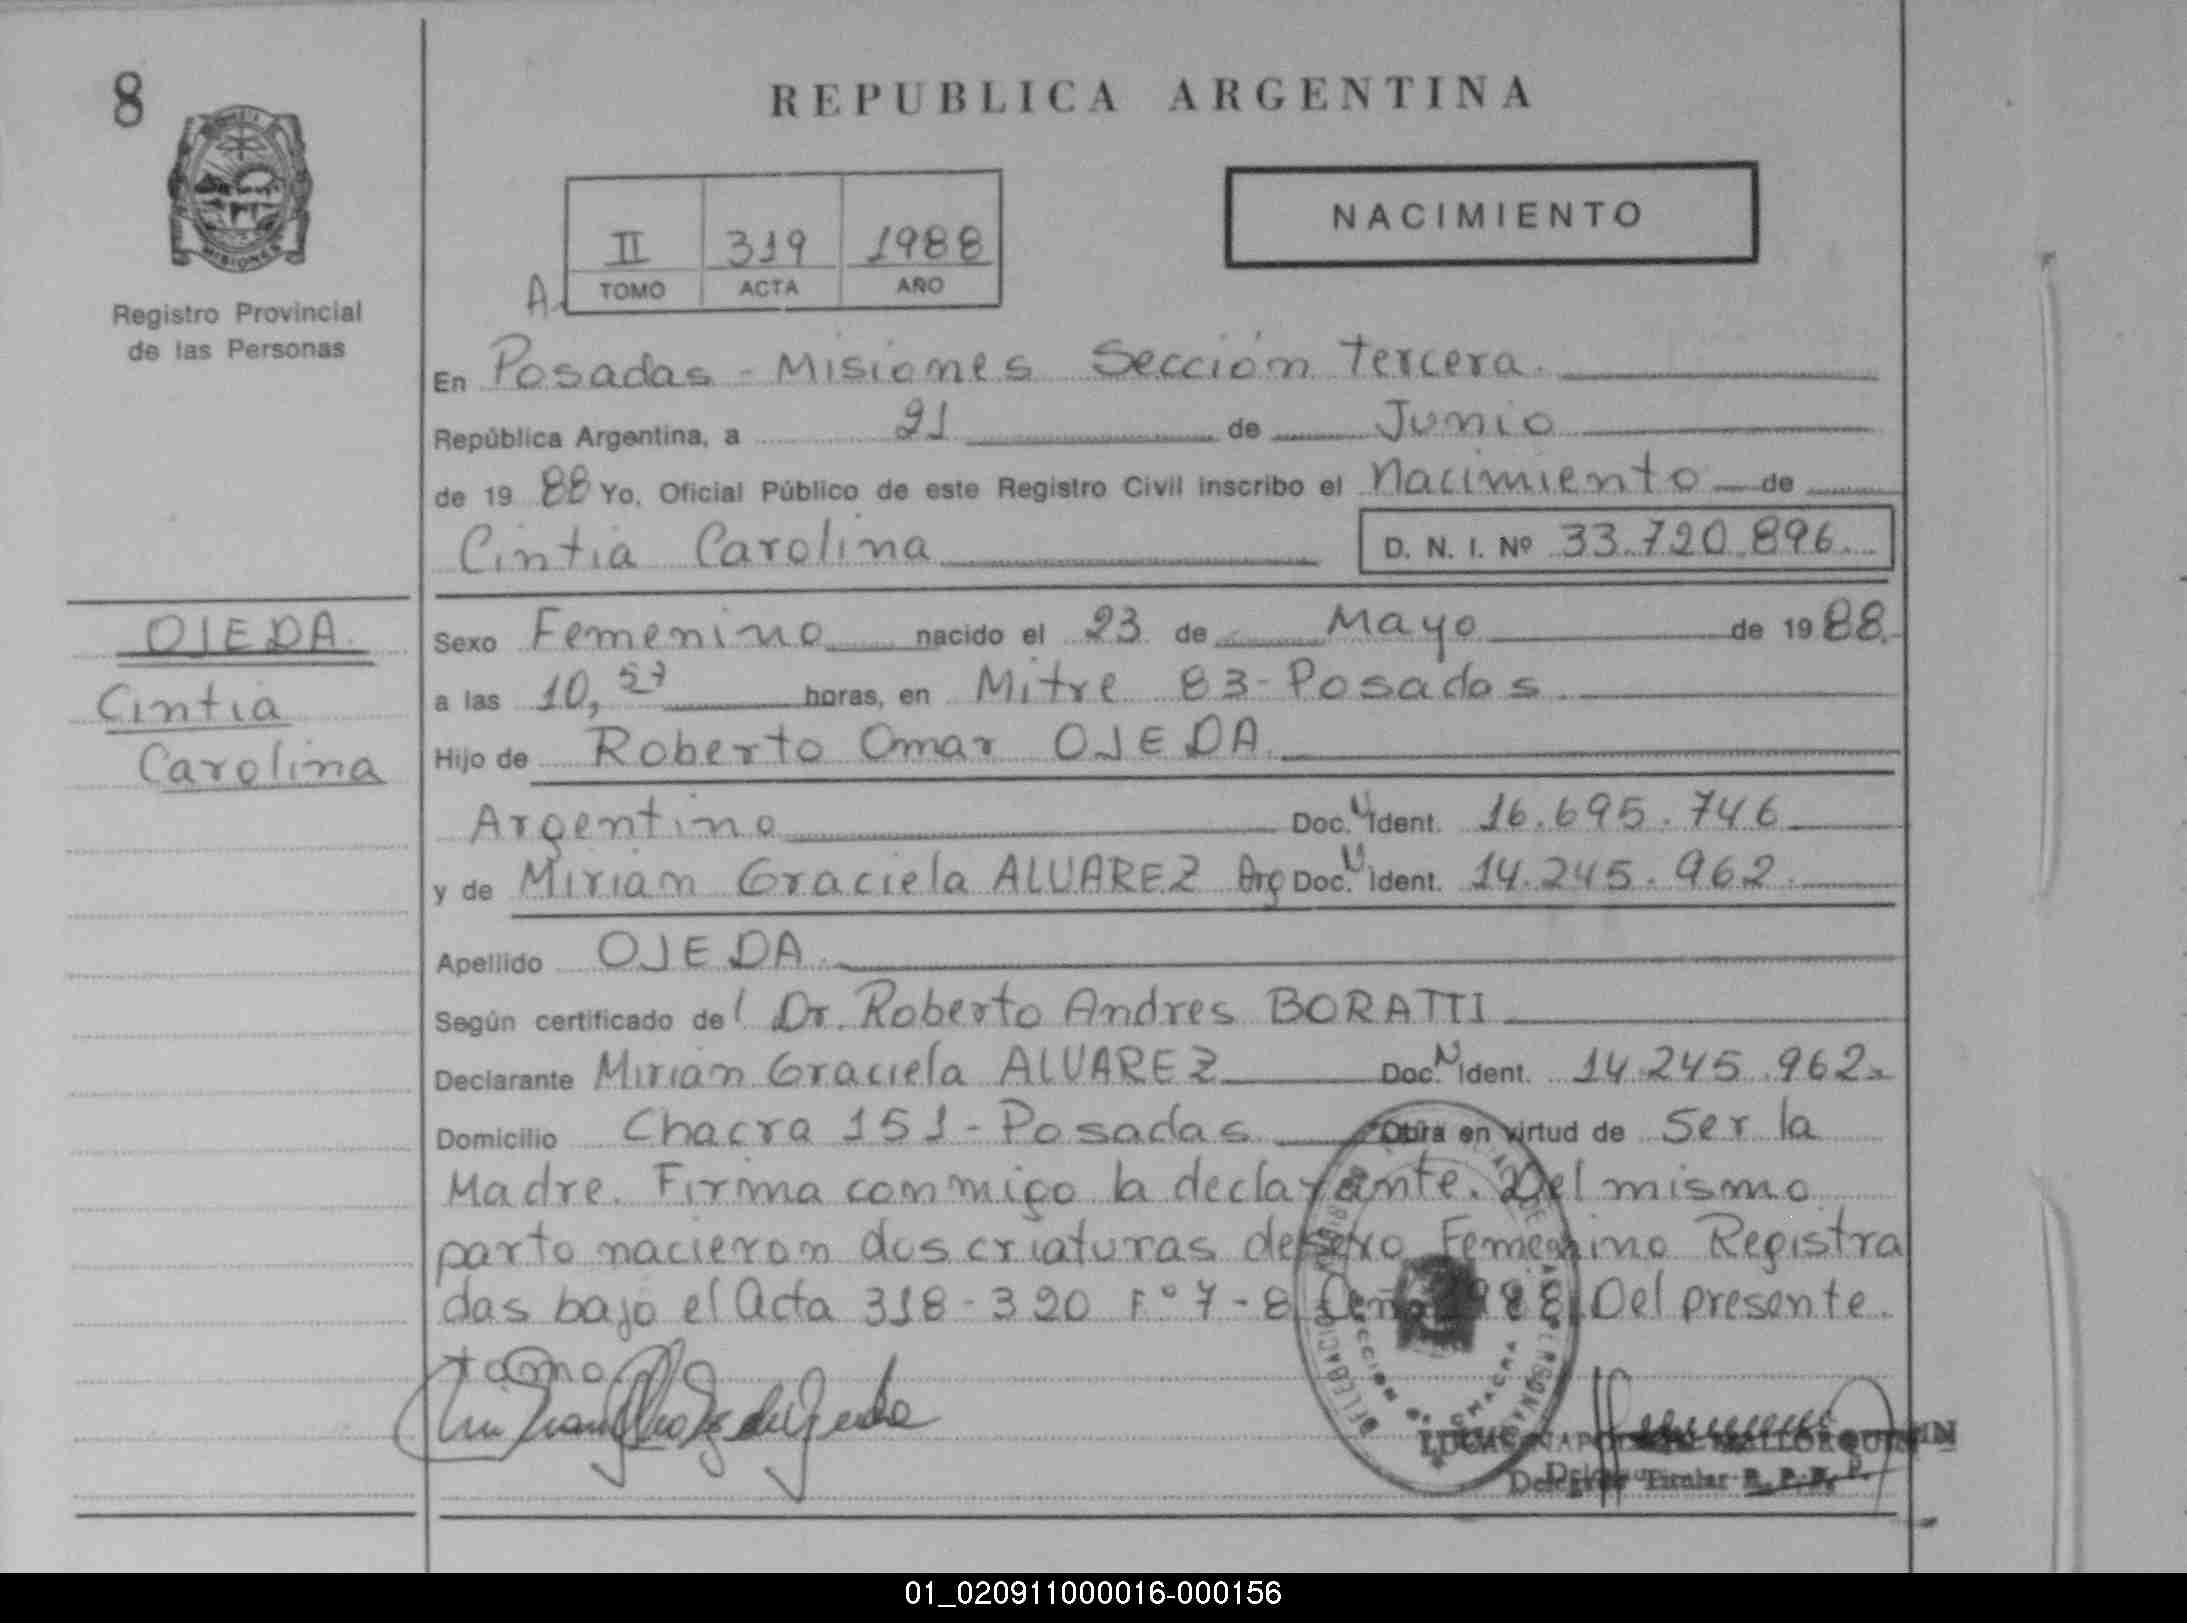 8
REPUBLICA ARGENTINA
MISIONES
Registro Provincial
de las Personas
II 319 1988
A. TOMO ACTA AÑO
NACIMIENTO
En Posadas - Misiones Sección Tercera.
República Argentina, a 21 de Junio
de 19 88 Yo, Oficial Público de este Registro Civil inscribo el Nacimiento de
Cintia Carolina D. N. I. Nº 33.720.896.
OJEDA
Cintia
Carolina
Sexo Femenino nacido el 23 de Mayo de 19 88.
a las 10,57 horas, en Mitre 83 - Posadas
Hijo de Roberto Omar OJEDA.
Argentino Doc. N Ident. 16.695.746
y de Mirian Graciela ALVAREZ Arg Doc. N Ident. 14.245.962.
Apellido OJEDA.
Según certificado del Dr. Roberto Andres BORATTI
Declarante Mirian Graciela ALVAREZ Doc. N Ident. 14.245.962.
Domicilio Chacra 151 - Posadas Obra en virtud de Ser la
Madre. Firma conmigo la declarante. Del mismo
parto nacieron dos criaturas de sexo Femenino Registra
das bajo el Acta 318 - 320 Fº 7 - 8 1988. Del presente
tomo
Delegado Titular R. P. P.
01_020911000016-000156